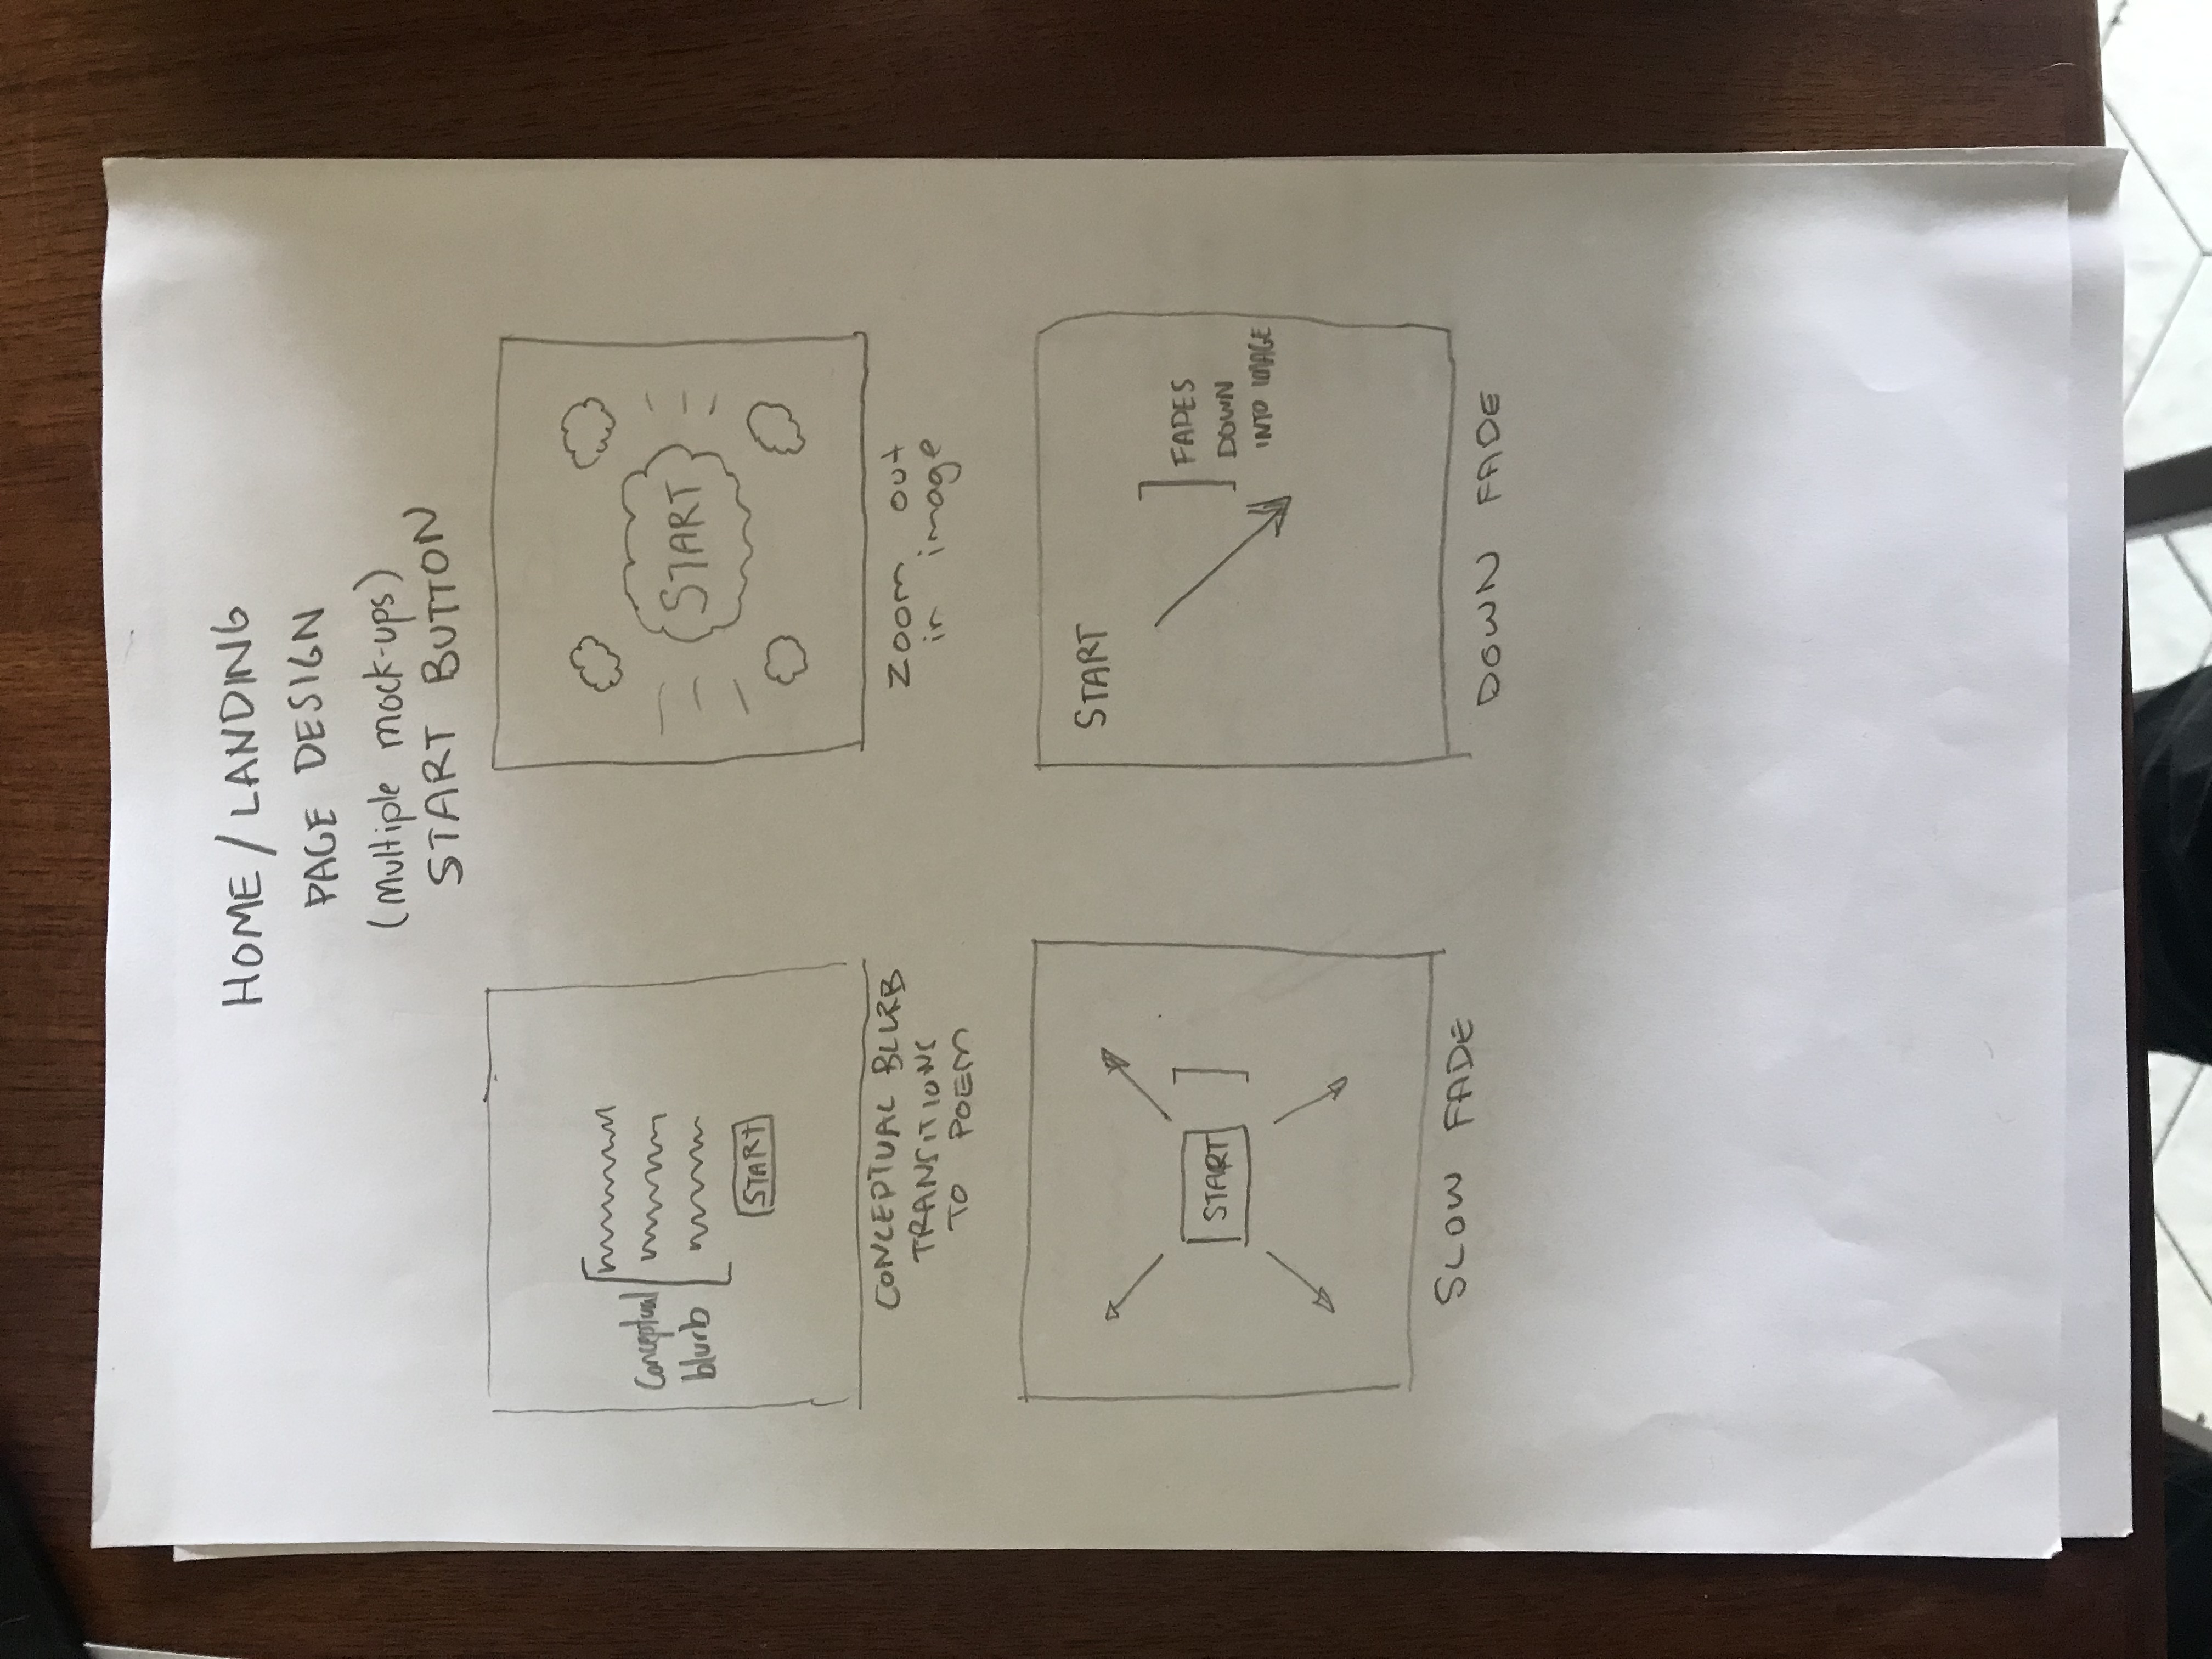 HOME / LANDING
PAGE DESIGN
(Multiple mock-ups)
START BUTTON
Conceptual
blurb
START
CONCEPTUAL BLURB
TRANSITIONS
TO POEM
START
Zoom out
in image
START
SLOW FADE
START
FADES
DOWN
INTO IMAGE
DOWN FADE